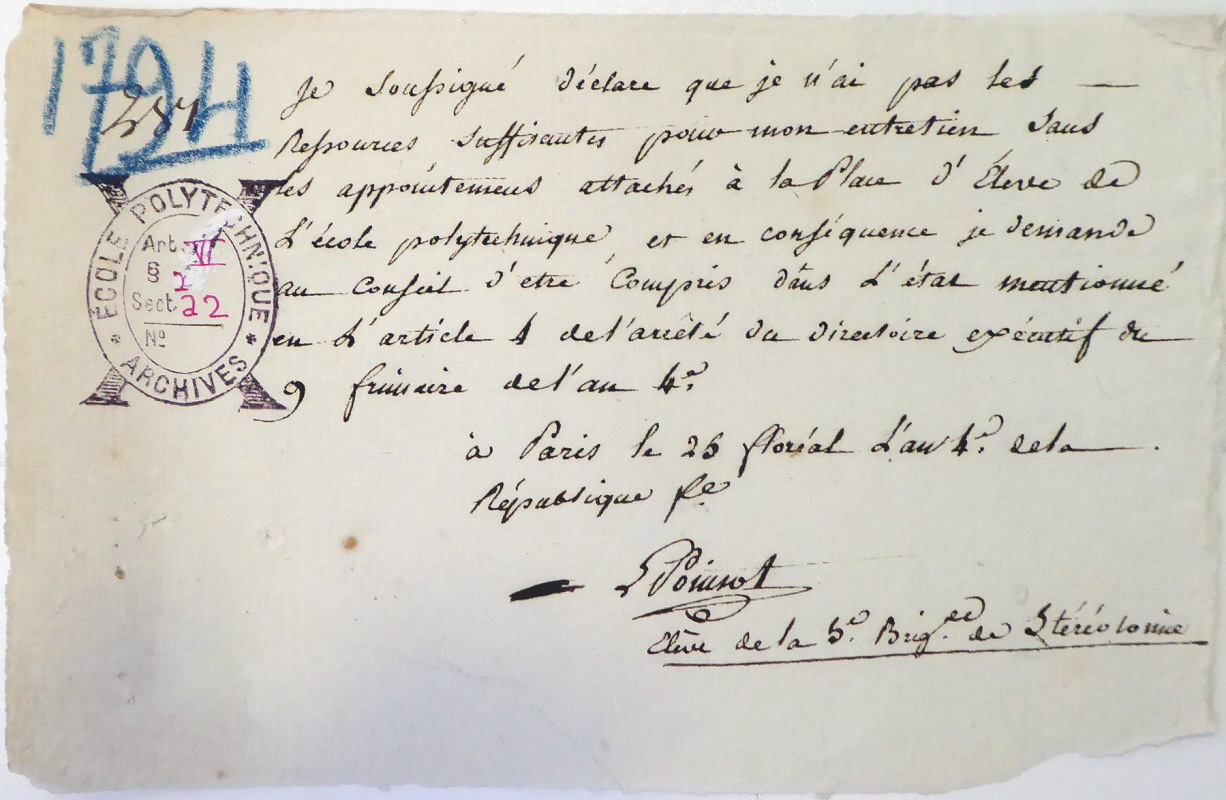 1794
Je soussigné déclare que je n'ai pas les —
Ressources suffisantes pour mon entretien sans
les appointemens attachés à la Place d'Éleve de
L'école polytechnique et en conséquence je demande
au conseil d'etre Compris dans L'état mentionné
en L'article 4 de l'arrêté du directoire exécutif du
9 frimaire de l'an 4.e
à Paris le 26 floréal L'an 4.e de la
République f.se
LPoinsot
Elève de la 5.e Brig.de de Stéréotomie
ÉCOLE POLYTECHNIQUE
Art. VI
§ 2
Sect. 22
No
* ARCHIVES *